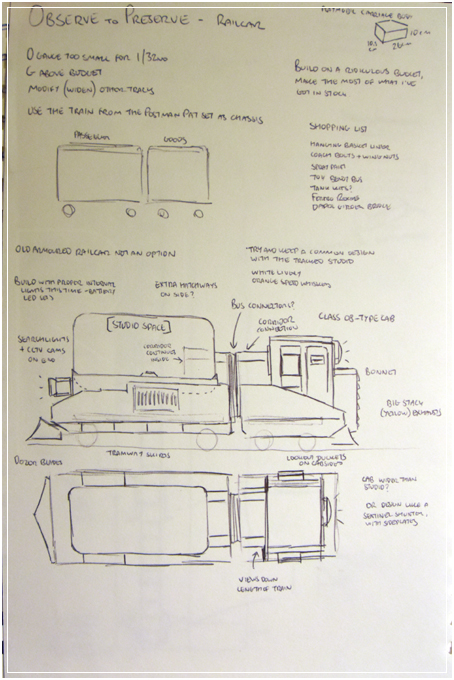 OBSERVE TO PRESERVE - RAILCAR
CARRIAGE BODY
10cm
26cm
O GAUGE TOO SMALL FOR 1/32ND
G ABOVE BUDGET
MODIFY (WIDEN) OTHER TRACK
USE THE TRAIN FROM THE POSTMAN PAT SET AS CHASSIS
BUILD ON A RIDICULOUS BUDGET,
MAKE THE MOST OF WHAT I'VE
GOT IN STOCK
SHOPPING LIST
HANGING BASKET LINER
COACH BOLTS + WINGNUTS
SPRAY PAINT
TOY BENDY BUS
DAPOL GIRDER BRIDGE
PASSENGER
GOODS
OLD ARMOURED RAILCAR NOT AN OPTION
TRY AND KEEP A COMMON DESIGN
WITH THE TRACKED STUDIO
WHITE LIVERY
ORANGE SPEED WHISKERS
BUILD WITH PROPER INTERNAL
LIGHTS THIS TIME - BATTERY
LED
EXTRA HATCHWAYS
ON SIDE?
BUS CONNECTORS?
CORRIDOR
CONNECTION
CLASS 08-TYPE CAB
[STUDIO SPACE]
CORRIDOR
CONTINUES
INSIDE
SEARCHLIGHTS
+ CCTV CAMS
ON END
BONNET
BIG STACK
(YOLOW)
DOZER BLADES
TRAMWAY SKIRTS
LOOKOUT DUCKETS
ON CABSIDES
CAB WIDER THAN
STUDIO?
OR DRAWN LIKE A
SENTINEL SHUNTER,
WITH SIDEPLATES
VIEWS DOWN
LENGTH OF TRAIN